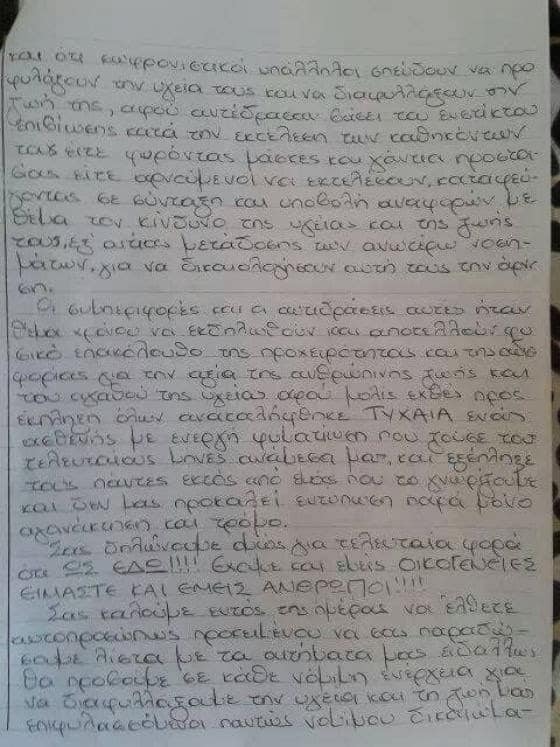 και ότι σωφρονιστικοί υπάλληλοι σπεύδουν να προ
φυλάξουν την υγεία τους και να διαφυλλάξουν την
ζωή της, αφού αντέδρασαν βάσει του ενστίκτου
επιβίωσης κατά την εκτέλεση των καθηκόντων
τους είτε φορώντας μάσκες και γάντια προστα-
σίας είτε αρνούμενοι να εκτελέσουν, καταφεύ-
γοντας σε σύνταξη και υποβολή αναφορών με
θέμα τον κίνδυνο της υγείας και της ζωής
τους, εξ' αιτίας μετάδοσης των ανωτέρω νοση-
μάτων, για να δικαιολογήσουν αυτή τους την άρνη
ση.
Οι συμπεριφορές και οι αντιδράσεις αυτές ήταν
θέμα χρόνου να εκδηλωθούν και αποτελλούν φυ
σικό επακόλουθο της προχειρότητας και της αδια
φορίας για την αξία της ανθρώπινης ζωής και
του αγαθού της υγείας αφού μόλις εχθές προς
έκπληξη όλων ανακαλήφθηκε ΤΥΧΑΙΑ ένας
ασθενής με ενεργή φυματίωση που ζούσε τους
τελευταίους μήνες ανάμεσα μας, και εξέπληξε
τους πάντες εκτός από εμάς που το γνωρίζουμε
και δεν μας προκαλεί εντύπωση παρά μόνο
αγανάκτηση και τρόμο.
Σας δηλώνουμε για τελευταία φορά
ότι ΩΣ ΕΔΩ!!!! Έχουμε και εμείς ΟΙΚΟΓΕΝΕΙΕΣ
ΕΙΜΑΣΤΕ ΚΑΙ ΕΜΕΙΣ ΑΝΘΡΩΠΟΙ!!!!
Σας καλούμε εντός της ημέρας να έλθετε
αυτοπροσώπως προκειμένου να σας παραδώ-
σουμε λίστα με τα αιτήματα μας ειδάλλως
θα προβούμε σε κάθε νόμιμη ενέργεια για
να διαφυλλάξουμε την υγεία και τη ζωή μας
επιφυλασσόμεθα παντώς νομίμου δικαιώμα-